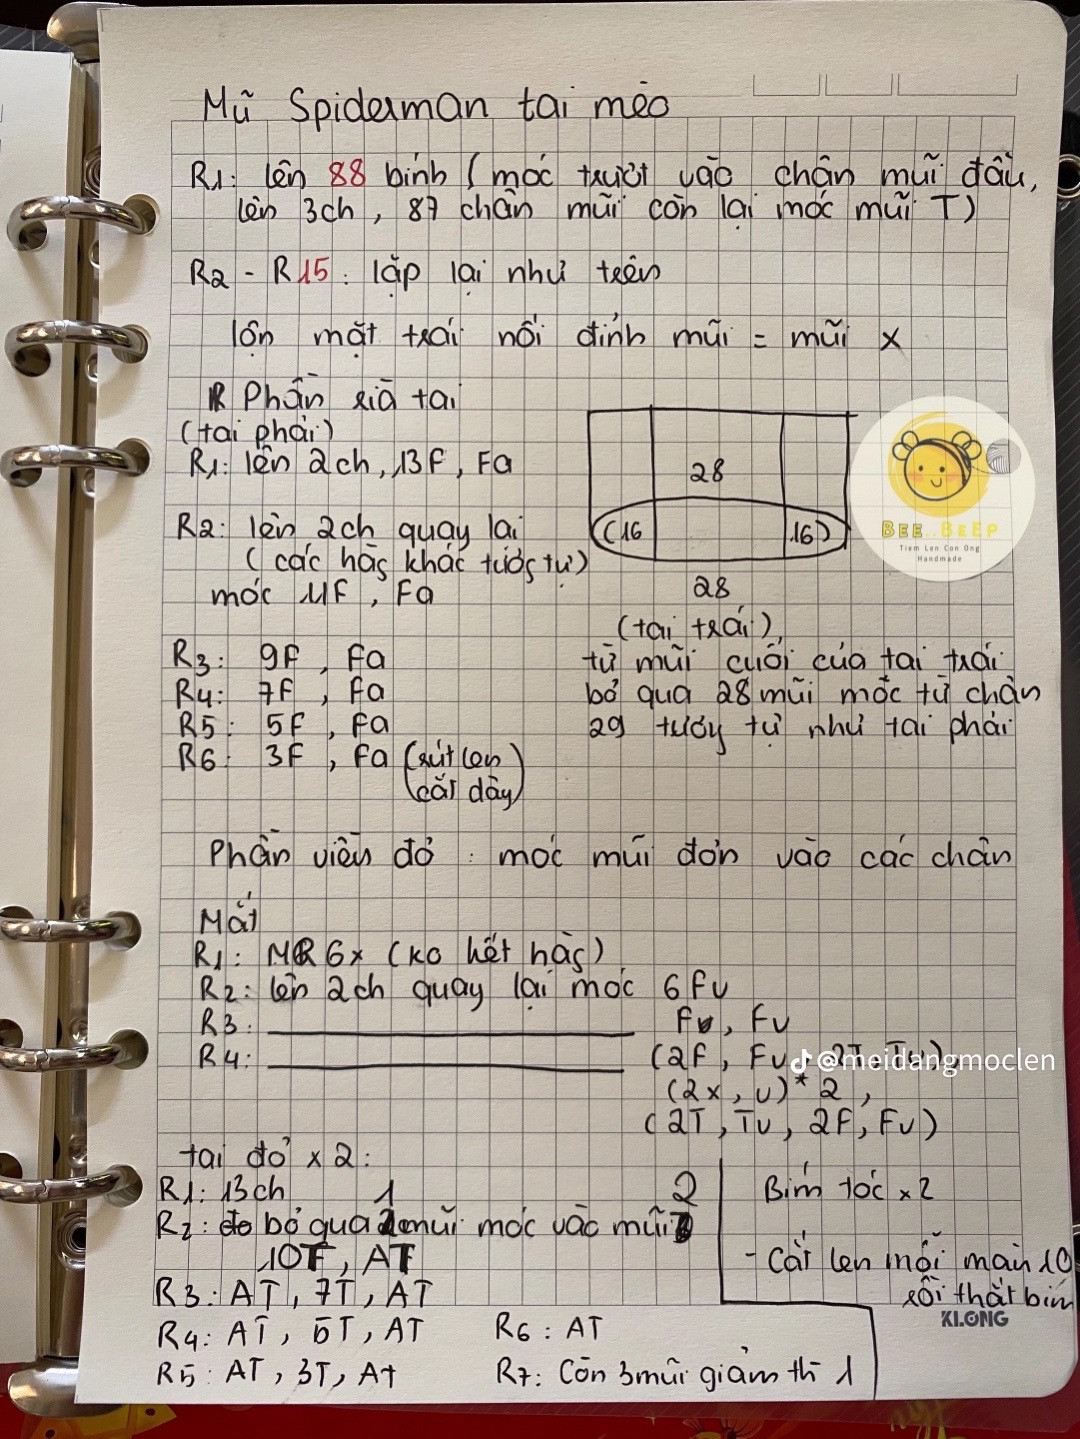 Mũ Spiderman tai mèo
R1: lên 88 bính (móc trượt vào chân mũi đầu,
lên 3ch, 87 chân mũi còn lại móc mũi T)
R2 - R15: lặp lại như trên
lộn mặt trái nối đỉnh mũi = mũi x
Phần rià tai
(tai phải)
R1: lên 2ch, 13F, Fa
28
R2: lên 2ch quay lại
(16
16)
(các hàg khác tươg tự)
móc 11F, Fa
28
(tai trái),
R3: 9F, Fa
từ mũi cuối của tai trái
R4: 7F, Fa
bỏ qua 28 mũi móc từ chân
R5: 5F, Fa
29 tươg tự như tai phải
R6: 3F, Fa (rút len
cắt dây)
BEE..BEEP
Tiem Len Con Ong
Handmade
Phần viền đỏ: móc mũi đơn vào các chân
Mắt
R1: MR 6x (ko hết hàg)
R2: lên 2ch quay lại móc 6 Fv
R3: Fv, Fv
R4: (2F, Fv, 2T, Tv),
@meidangmoclen
(2x, v)* 2,
(2T, Tv, 2F, Fv)
tai đỏ x 2:
R1: 13ch
R2: bỏ qua 1 mũi móc vào mũi 2
10T, AT
R3: AT, 7T, AT
R4: AT, 5T, AT
R5: AT, 3T, AT
R6: AT
R7: Còn 3 mũi giảm th 1
Bím tóc x 2
- Cắt len mỗi màu 10
rồi thắt bím
KLONG